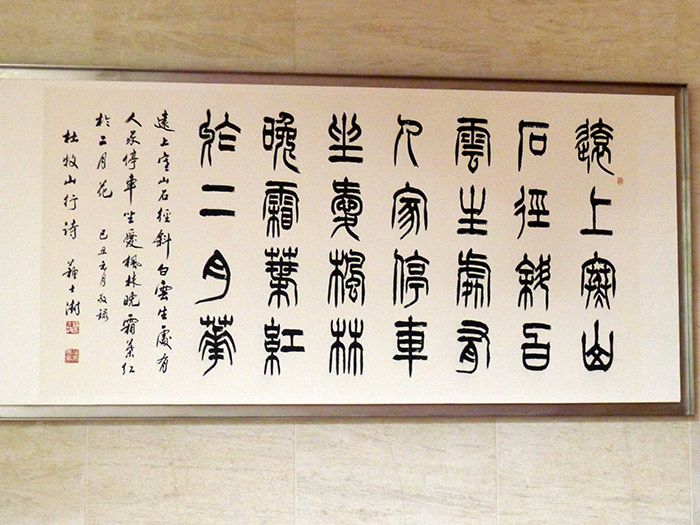 遠上寒山
石徑斜白
雲生處有
人家停車
坐愛楓林
晚霜葉紅
於二月華
遠上寒山石徑斜白雲生處有
人家停車坐愛楓林晚霜葉紅
於二月花 己丑元月敬録
杜牧山行诗 蘇士澍